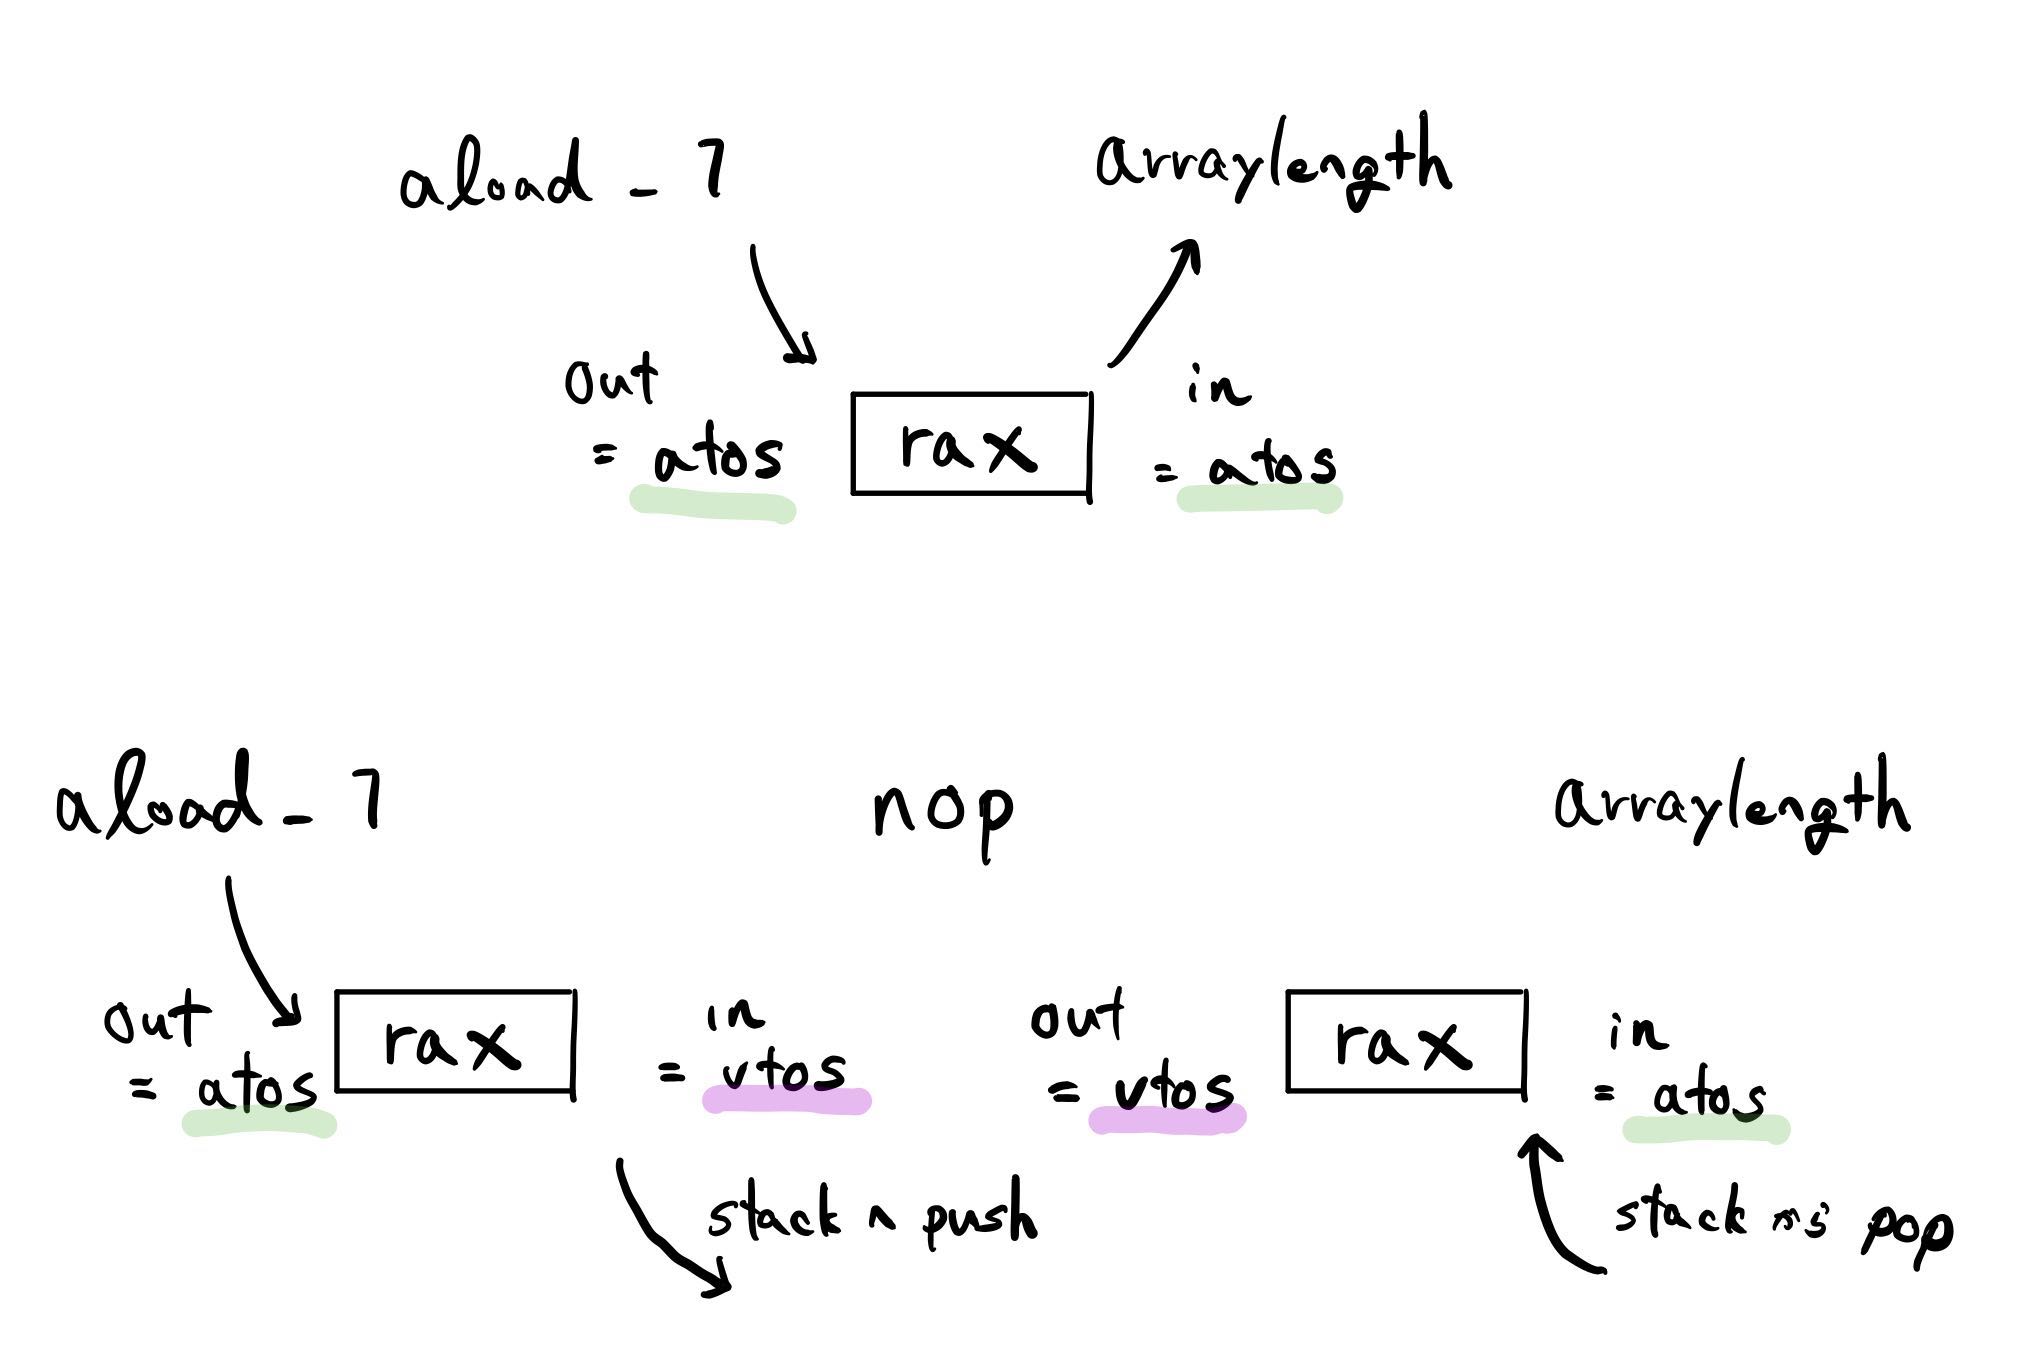 aload_7
arraylength
out
= atos
rax
in
= atos
aload_7
nop
arraylength
out
= atos
rax
in
= vtos
stack へ push
out
= vtos
rax
in
= atos
stack から pop